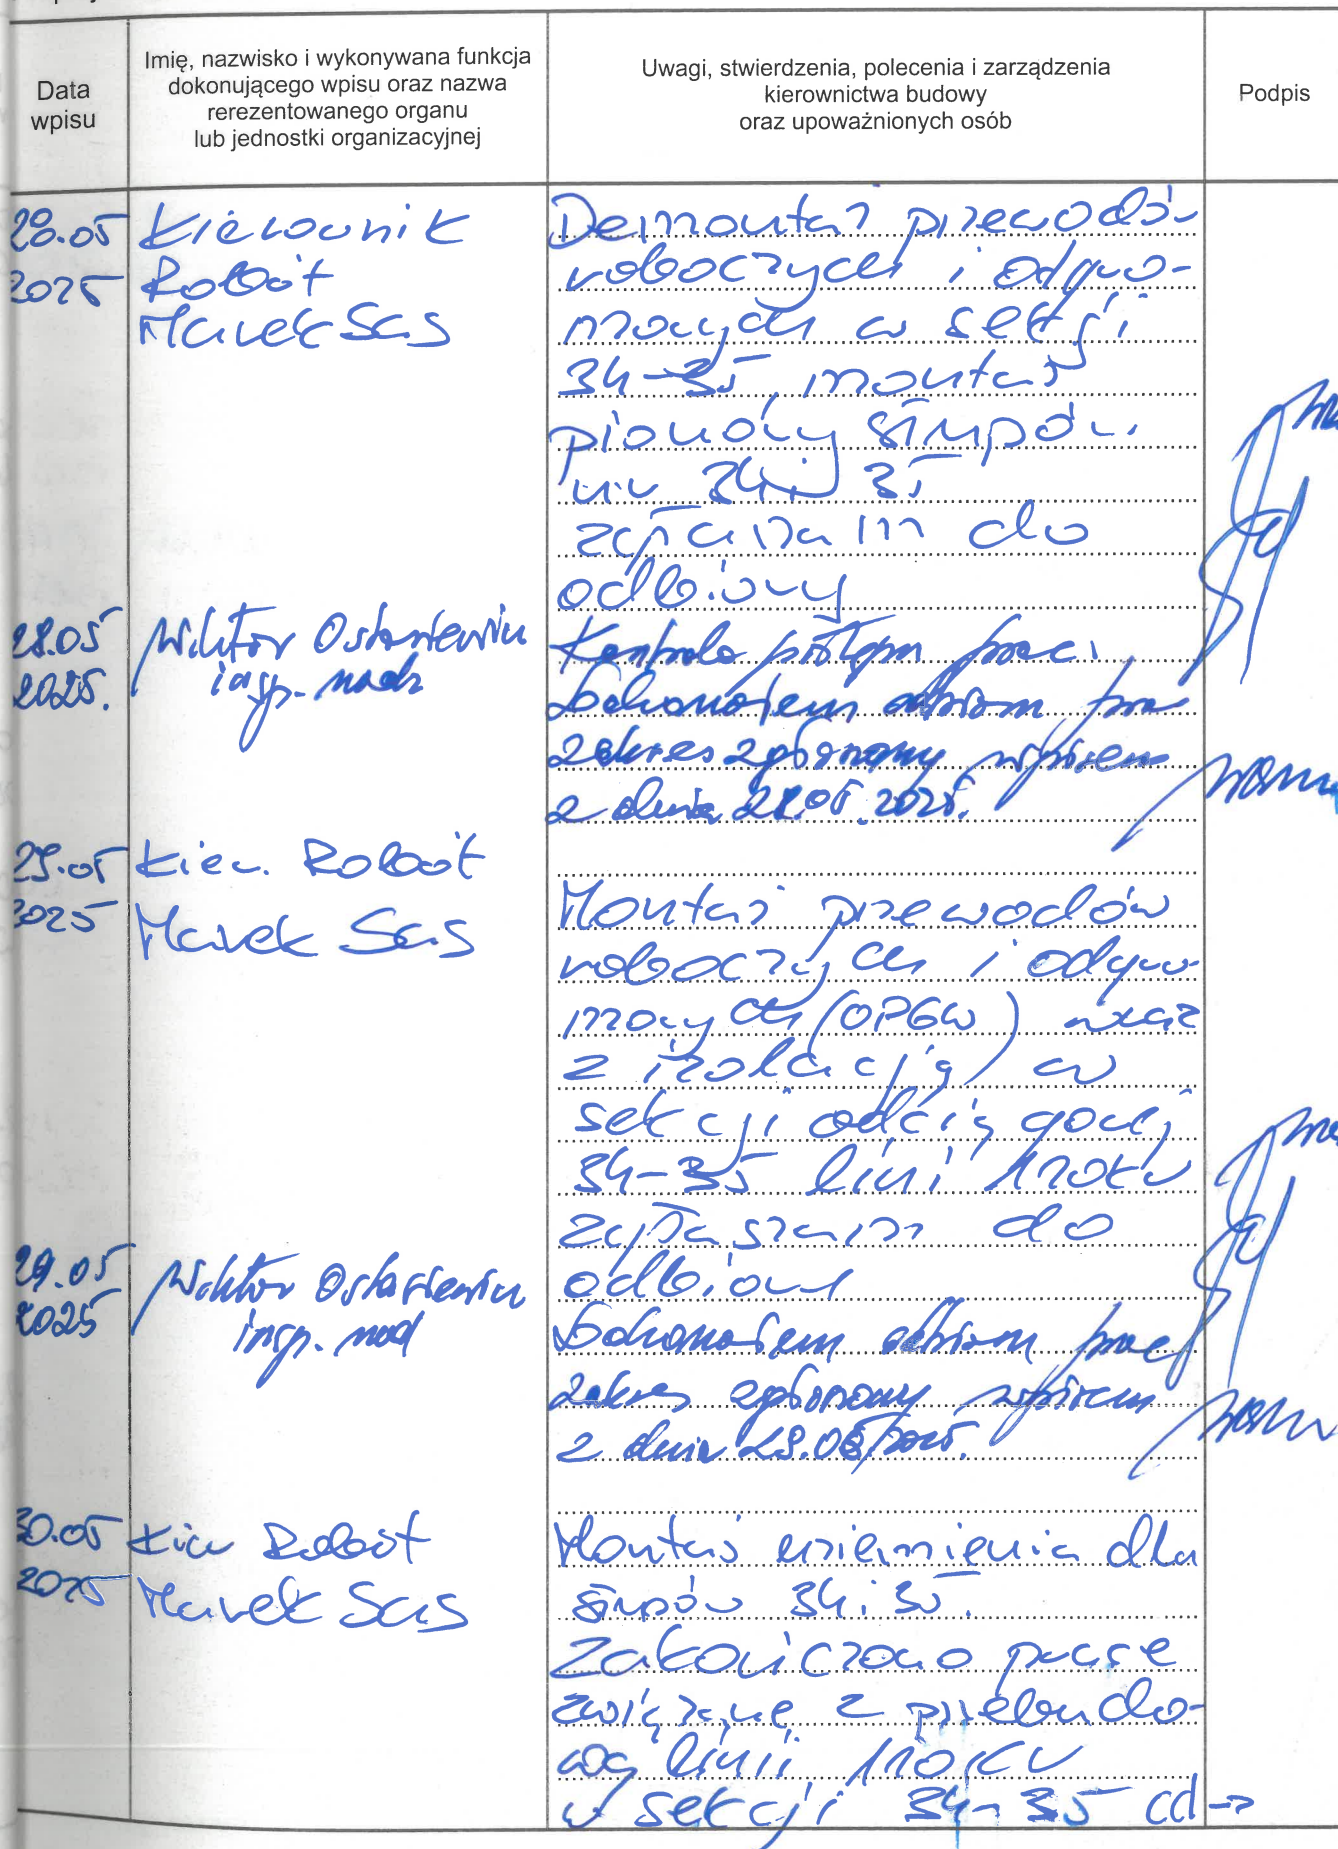 Data
wpisu
Imię, nazwisko i wykonywana funkcja
dokonującego wpisu oraz nazwa
rerezentowanego organu
lub jednostki organizacyjnej
Uwagi, stwierdzenia, polecenia i zarządzenia
kierownictwa budowy
oraz upoważnionych osób
Podpis
28.05
2025
Kierownik
Robót
Marek Sas
Demontaż przewodów
roboczych i odgro-
mowych w sekcji
34-35, montaż
słupów
nr 34 i 35
zgłaszam do
odbioru
28.05
2025.
Wiktor
insp. nadz
Kontrola postępu prac.
Dokonałem odbioru prac
zakres zgłoszony wpisem
z dnia 28.05.2025.
29.05
2025
Kier. Robót
Marek Sas
Montaż przewodów
roboczych i odgro-
mowych (OPGW) wraz
z izolacją w
sekcji odciągowej
34-35 linii 110kV
zgłaszam do
odbioru
29.05
2025
Wiktor
insp. nad
Dokonałem odbioru prac
zakres zgłoszony wpisem
z dnia 29.05.2025.
30.05
2025
Kier Robót
Marek Sas
Montaż uziemienia dla
słupów 34 i 35.
Zakończono prace
związane z przebudo-
wą linii 110kV
w sekcji 34-35 cd →